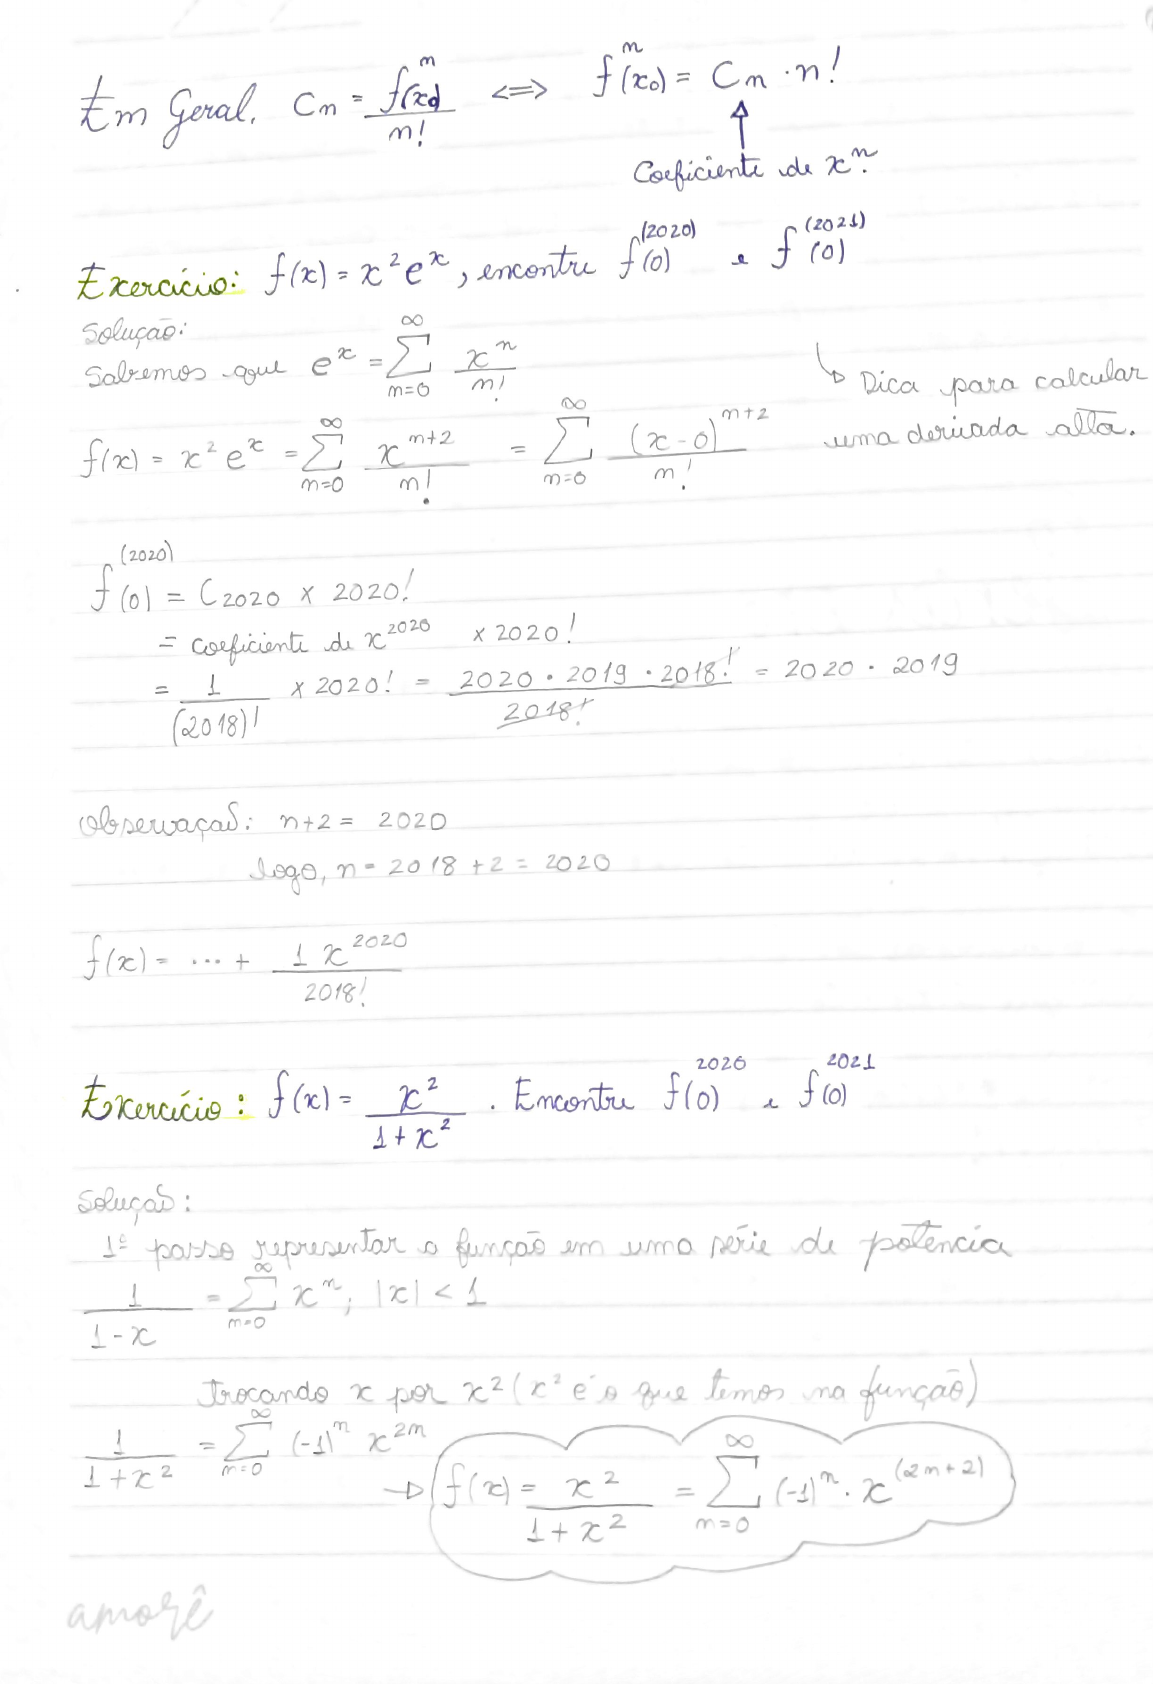 Em Geral, Cn = f^n(x0)/n! <=> f^n(x0) = Cn · n!
Coeficiente de x^n.
Exercício: f(x) = x^2 e^x, encontre f^(2020)(0) e f^(2021)(0)
Solução:
Sabemos que e^x = ∑_{n=0}^∞ x^n/n!
↳ Dica para calcular
uma derivada alta.
f(x) = x^2 e^x = ∑_{n=0}^∞ x^{n+2}/n! = ∑_{n=0}^∞ (x-0)^{n+2}/n!
f^(2020)(0) = C2020 x 2020!
= coeficiente de x^2020 x 2020!
= 1/(2018)! x 2020! = 2020 · 2019 · 2018!/2018! = 2020 · 2019
Observação: n+2 = 2020
logo, n = 2018 + 2 = 2020
f(x) = ... + 1 x^2020/2018!
Exercício: f(x) = x^2/(1+x^2). Encontre f^2020(0) e f^2021(0)
Solução:
1º passo representar a função em uma série de potência
1/(1-x) = ∑_{n=0}^∞ x^n, |x| < 1
Trocando x por x^2 (x^2 é o que temos na função)
1/(1+x^2) = ∑_{n=0}^∞ (-1)^n x^{2n}
→ f(x) = x^2/(1+x^2) = ∑_{n=0}^∞ (-1)^n · x^(2n+2)
amorê